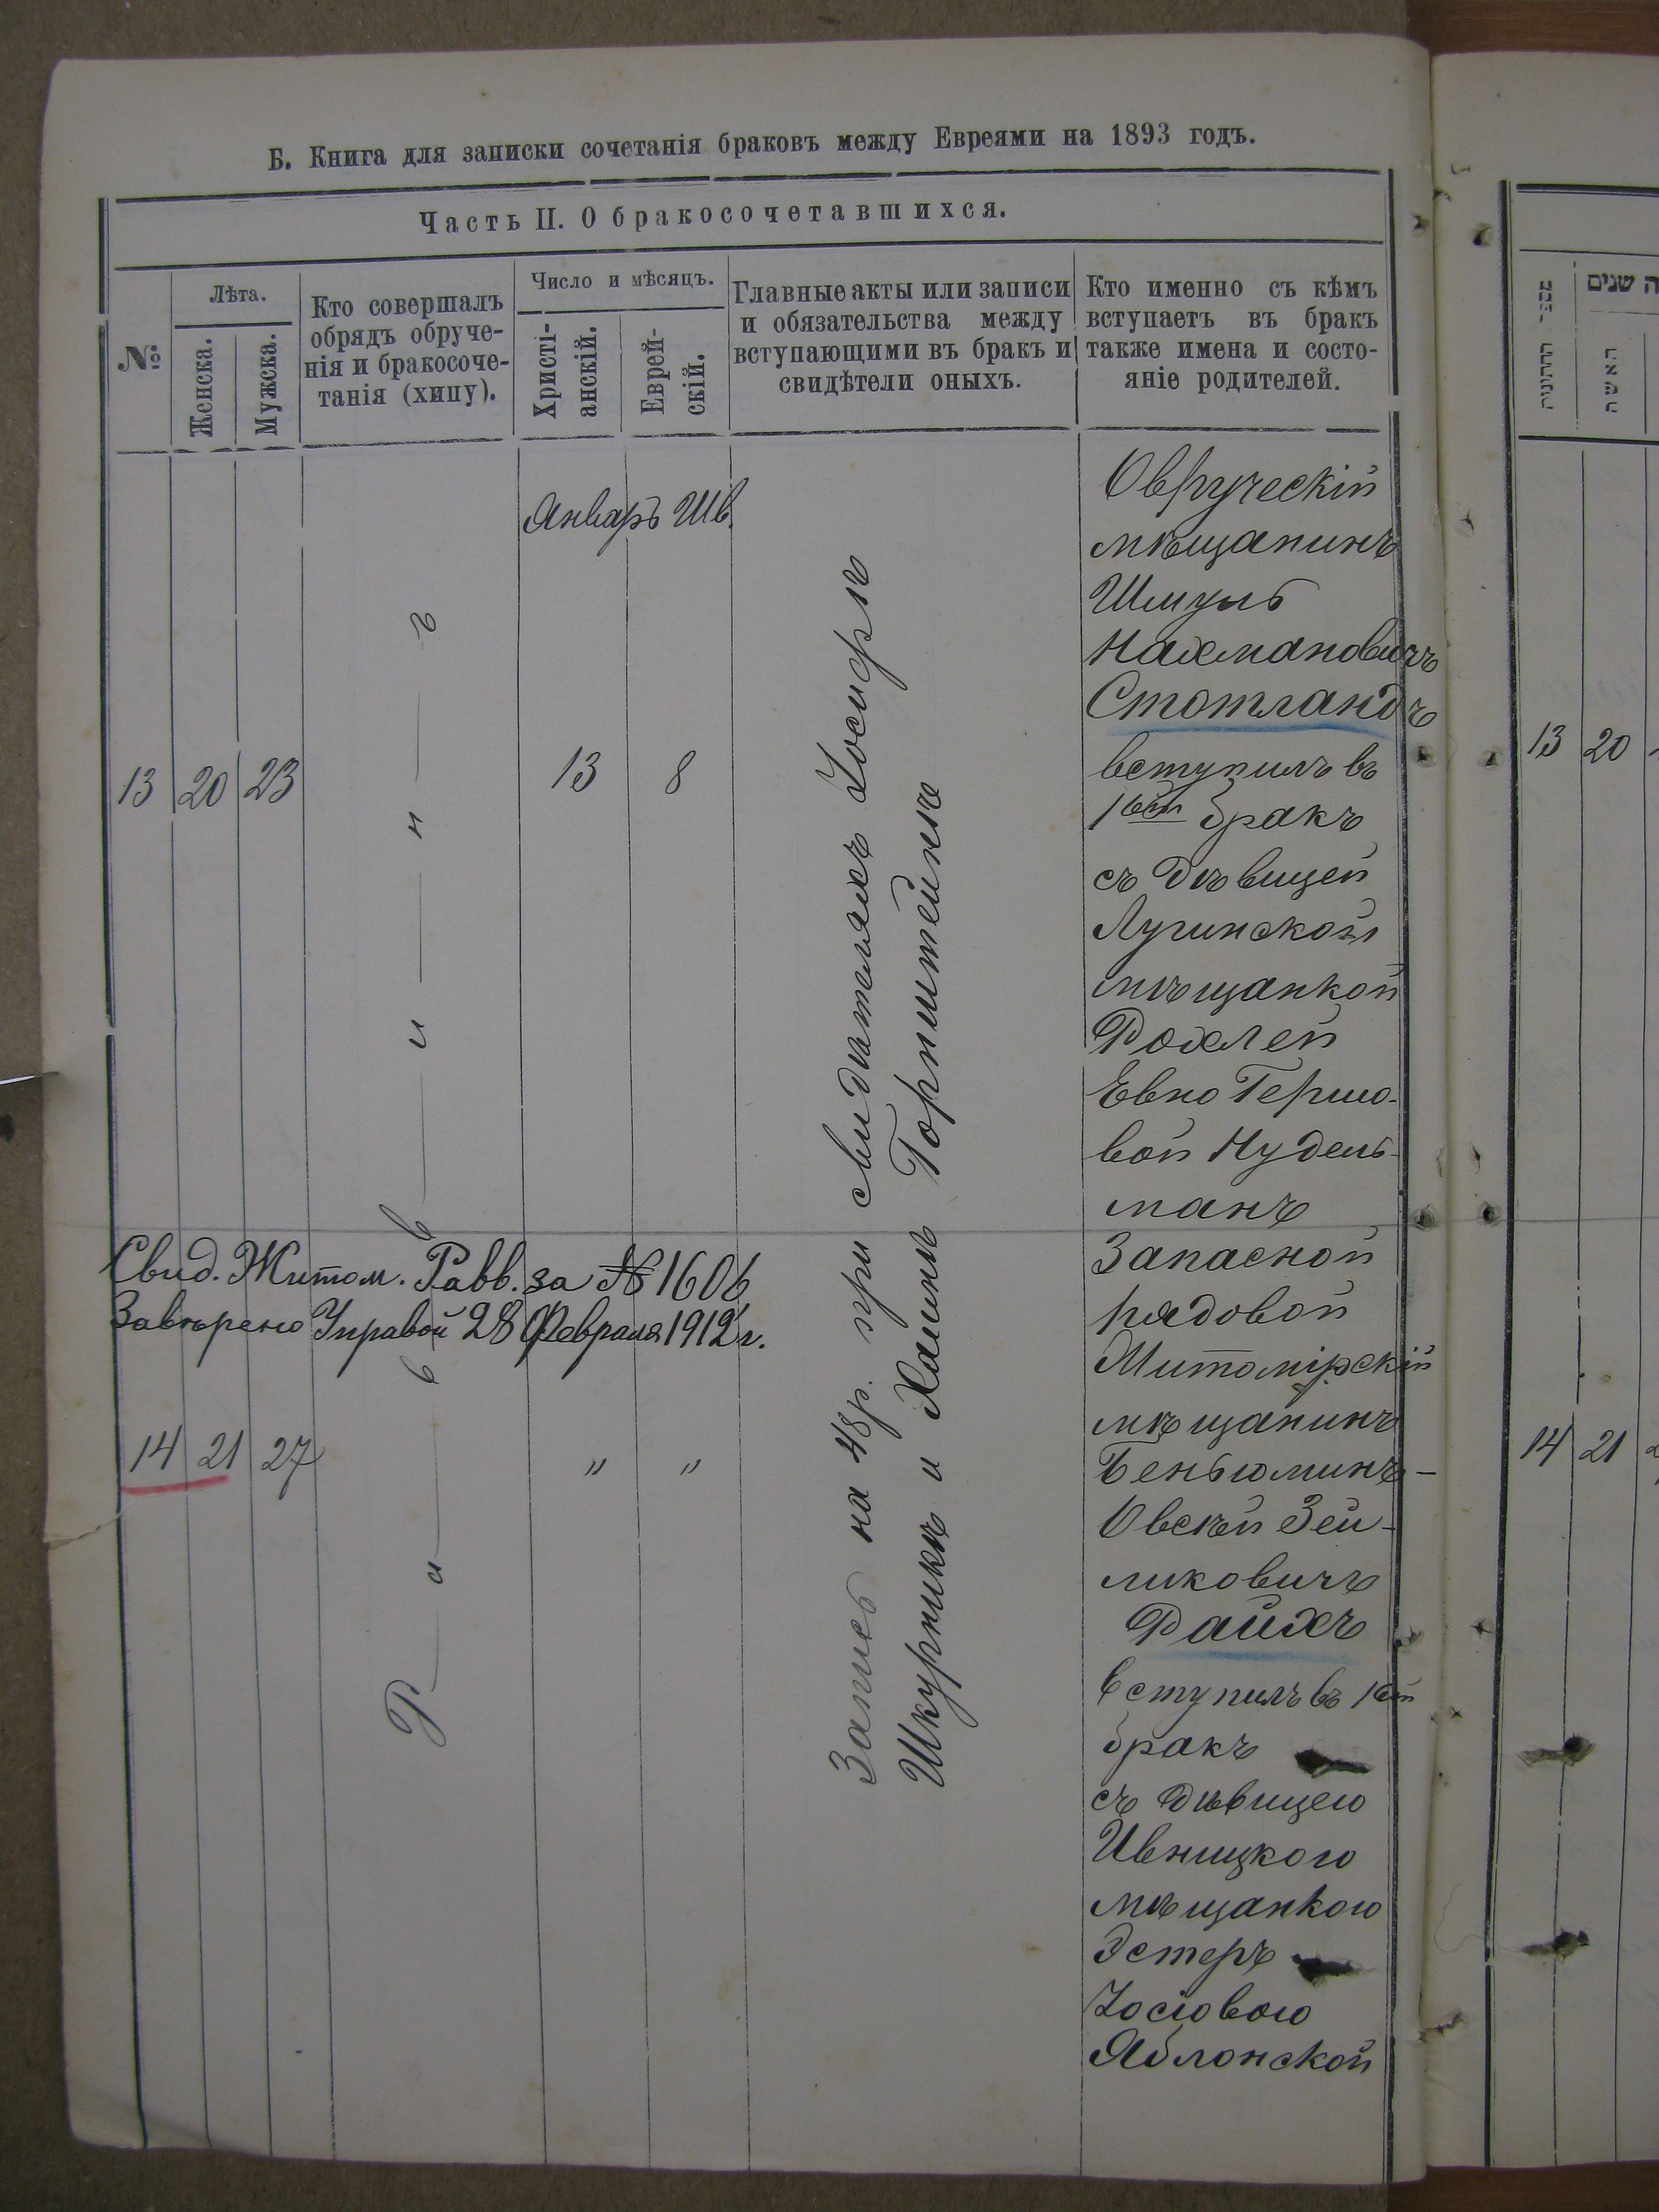 Б. Книга для записки сочетанія браковъ между Евреями на 1893 годъ.
Часть II. О бракосочетавшихся.
№
Лѣта.
Женска.
Мужска.
Кто совершалъ
обрядъ обруче-
нія и бракосоче-
танія (хипу).
Число и мѣсяцъ.
Христі-
анскій.
Еврей-
скій.
Главные акты или записи
и обязательства между
вступающими въ бракъ и
свидѣтели оныхъ.
Кто именно съ кѣмъ
вступаетъ въ бракъ
также имена и состо-
яніе родителей.
Январь Шв.
13 20 23
13 8
Р—а—в—в—и—н—ъ
Запись на 48 р. при свидѣтеляхъ Іосифѣ
Шкурникѣ и Хаимѣ Горнштейнѣ
Овруческій
мѣщанинъ
Шмуль
Нахмановичъ
Стотландъ
вступилъ въ
1ый бракъ
съ дѣвицей
Лугинской
мѣщанкой
Рохлей
Евно Гершо-
вой Нудель-
манъ
Свид. Житом. Равв. за № 1606
Завѣрено Управой 28 Февраля 1912 г.
14 21 27
" "
Запасной
рядовой
Житомірскій
мѣщанинъ
Беньюминъ-
Овсѣй Зей-
ликовичъ
Райхъ
вступилъ въ 1ый
бракъ
съ дѣвицею
Ивницкого
мѣщанкою
Эстеръ
Іосіовою
Яблонской
ה שנים
האשה
13 20
14 21